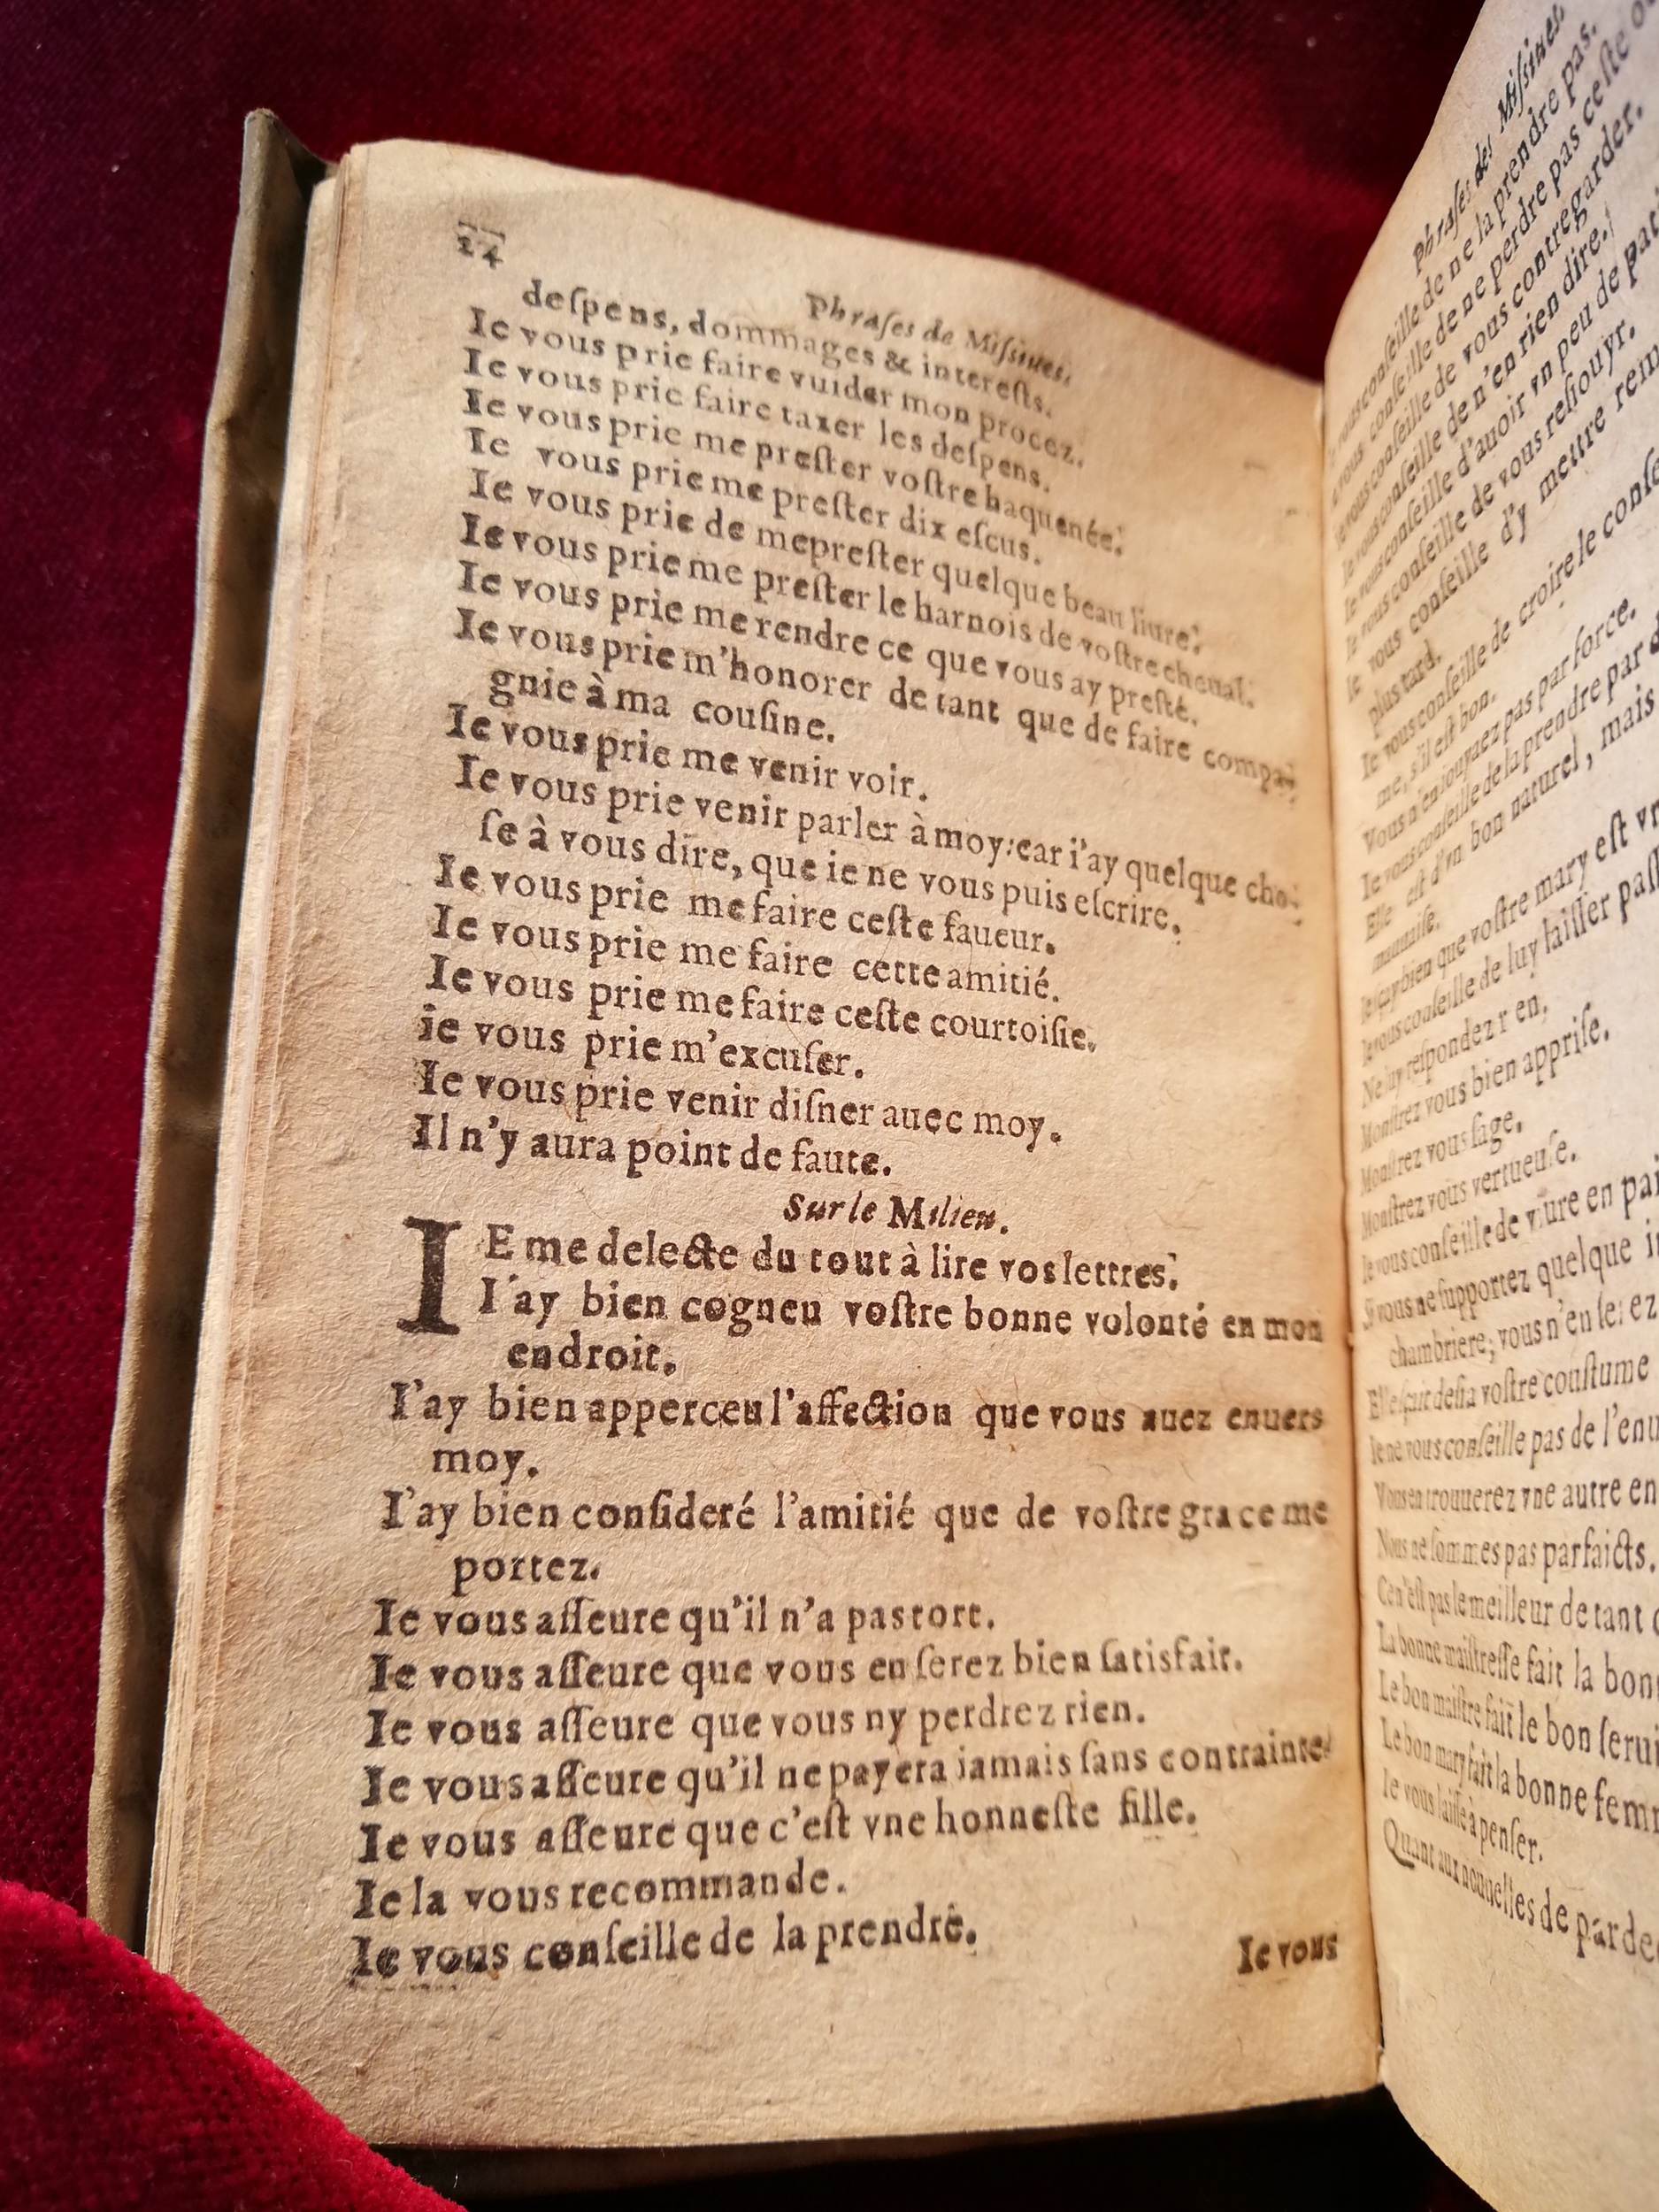 24
Phraſes de Miſsiues.
deſpens, dommages & intereſts.
Ie vous prie faire vuider mon procez.
Ie vous prie faire taxer les deſpens.
Ie vous prie me preſter voſtre haquenée.
Ie vous prie me preſter dix eſcus.
Ie vous prie de mepreſter quelque beau liure.
Ie vous prie me preſter le harnois de voſtre cheual.
Ie vous prie me rendre ce que vous ay preſté.
Ie vous prie m'honorer de tant que de faire compa-
gnie à ma couſine.
Ie vous prie me venir voir.
Ie vous prie venir parler à moy: car i'ay quelque cho-
ſe à vous dire, que ie ne vous puis eſcrire.
Ie vous prie me faire ceſte faueur.
Ie vous prie me faire cette amitié.
Ie vous prie me faire ceſte courtoiſie.
ie vous prie m'excuſer.
Ie vous prie venir diſner auec moy.
Il n'y aura point de faute.
Sur le Milieu.
IE me delecte du tout à lire vos lettres.
I'ay bien cogneu voſtre bonne volonté en mon
endroit.
I'ay bien apperceu l'affection que vous auez enuers
moy.
I'ay bien conſideré l'amitié que de voſtre grace me
portez.
Ie vous aſſeure qu'il n'a pas tort.
Ie vous aſſeure que vous en ſerez bien ſatisfait.
Ie vous aſſeure que vous ny perdrez rien.
Ie vous aſſeure qu'il ne payera iamais ſans contrainte.
Ie vous aſſeure que c'eſt vne honneſte fille.
Ie la vous recommande.
Ie vous conſeille de la prendre.
Ie vous
Phraſes des Miſsiues.
conſeille de ne la prendre pas.
vous conſeille de ne perdre pas ceſte
Ie vous conſeille de vous contregarder.
Ie vous conſeille de n'en rien dire.
Ie vous conſeille d'auoir vn peu de
Ie vous conſeille de vous reſiouyr.
Ie vous conſeille d'y mettre
plus tard.
Ie vous conſeille de croire le
me, s'il eſt bon.
Vous n'en iouyrez pas par force.
Ie vous conſeille de la prendre par
Elle eſt d'vn bon naturel, mais
mauuaiſe.
Ie ſçay bien que voſtre mary eſt
Ie vous conſeille de luy laiſſer
Ne luy reſpondez r en.
Monſtrez vous bien appriſe.
Monſtrez vous ſage.
Monſtrez vous vertueuſe.
Ie vous conſeille de viure en
Si vous ne ſupportez quelque
chambriere; vous n'en ſerez
Elle ſçait deſia voſtre couſtume
Ie ne vous conſeille pas de
Vous en trouuerez vne autre en
Nous ne ſommes pas parfaicts.
Ce n'eſt pas le meilleur de tant
La bonne maiſtreſſe fait la
Le bon maiſtre fait le bon
Le bon mary fait la bonne
Ie vous laiſſe à penſer.
Quant aux nouuelles de par